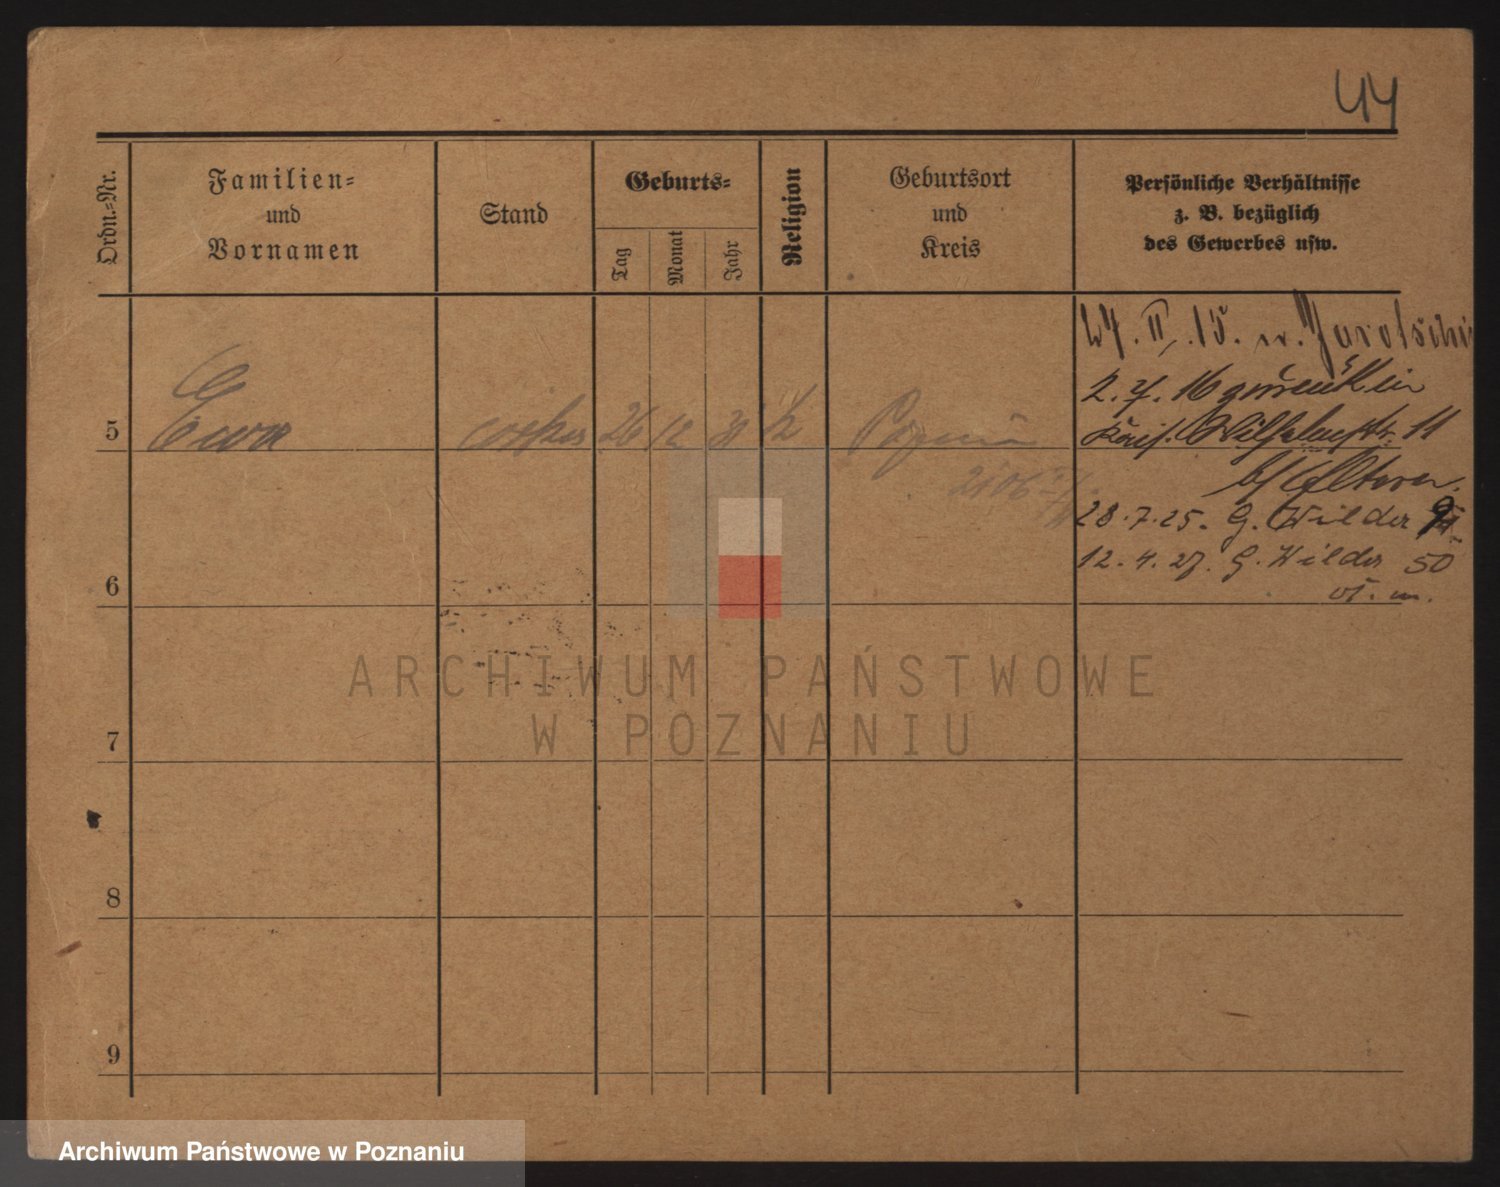 44
Ordn.-Nr.
Familien-
und
Vornamen
Stand
Geburts-
Tag
Monat
Jahr
Religion
Geburtsort
und
Kreis
Persönliche Verhältnisse
z. B. bezüglich
des Gewerbes usw.
5
Ewa
córka
26
12
31
k
Poznań
27. II. 15. n. Jarotschin
2. 7. 16 zurück in
Wilhelmstr. 11
b/ Eltern.
28.7.25. G. Wilder
12.4.27. G. Wilder 50
6
7
8
9
ARCHIWUM PAŃSTWOWE
W POZNANIU
Archiwum Państwowe w Poznaniu